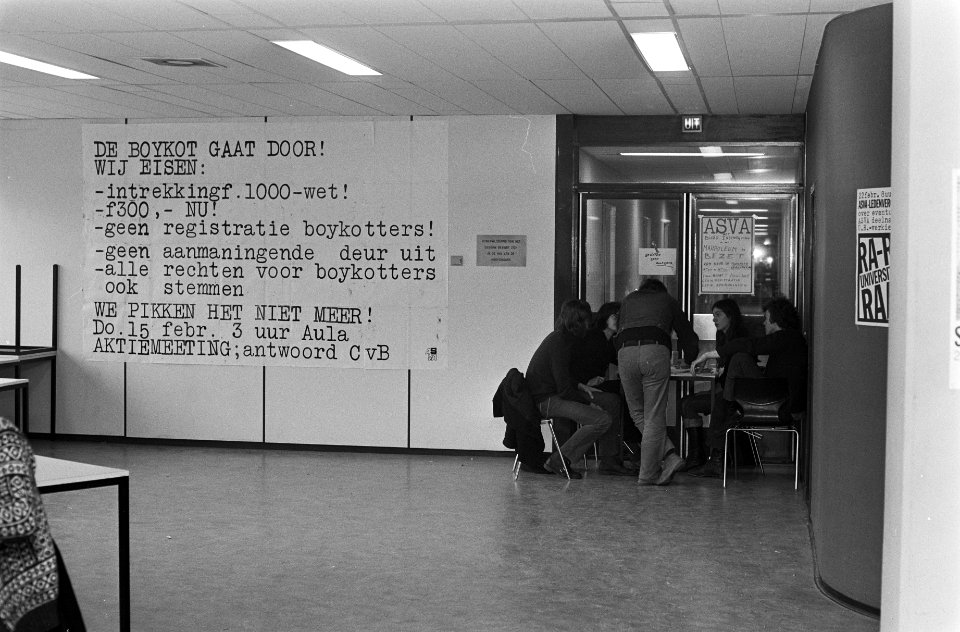 DE BOYKOT GAAT DOOR!
WIJ EISEN:
-intrekkingf.1000-wet!
-f300,- NU!
-geen registratie boykotters!
-geen aanmaningende deur uit
-alle rechten voor boykotters
ook stemmen
WE PIKKEN HET NIET MEER!
Do.15 febr. 3 uur Aula
AKTIEMEETING;antwoord CvB
UIT
ASVA
BEZET
22febr. 8uu
ASVA-LEDENVER
over eventu
ASVA deeln
U.R.-werkle
RA-R
UNIVERSI
RA
S